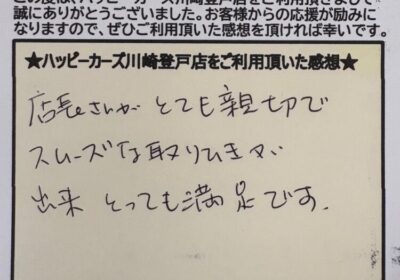 この度は、ハッピーカーズ川崎登戸店をご利用頂きまして
誠にありがとうございました。お客様からの応援が励みに
なりますので、ぜひご利用頂いた感想を頂ければ幸いです。
★ハッピーカーズ川崎登戸店をご利用頂いた感想★
店長さんが とても親切で
スムーズな取りひきが
出来 とっても満足です.